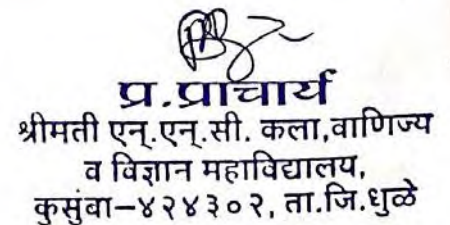 प्र.प्राचार्य
श्रीमती एन्.एन्.सी. कला,वाणिज्य
व विज्ञान महाविद्यालय,
कुसुंबा–४२४३०२, ता.जि.धुळे